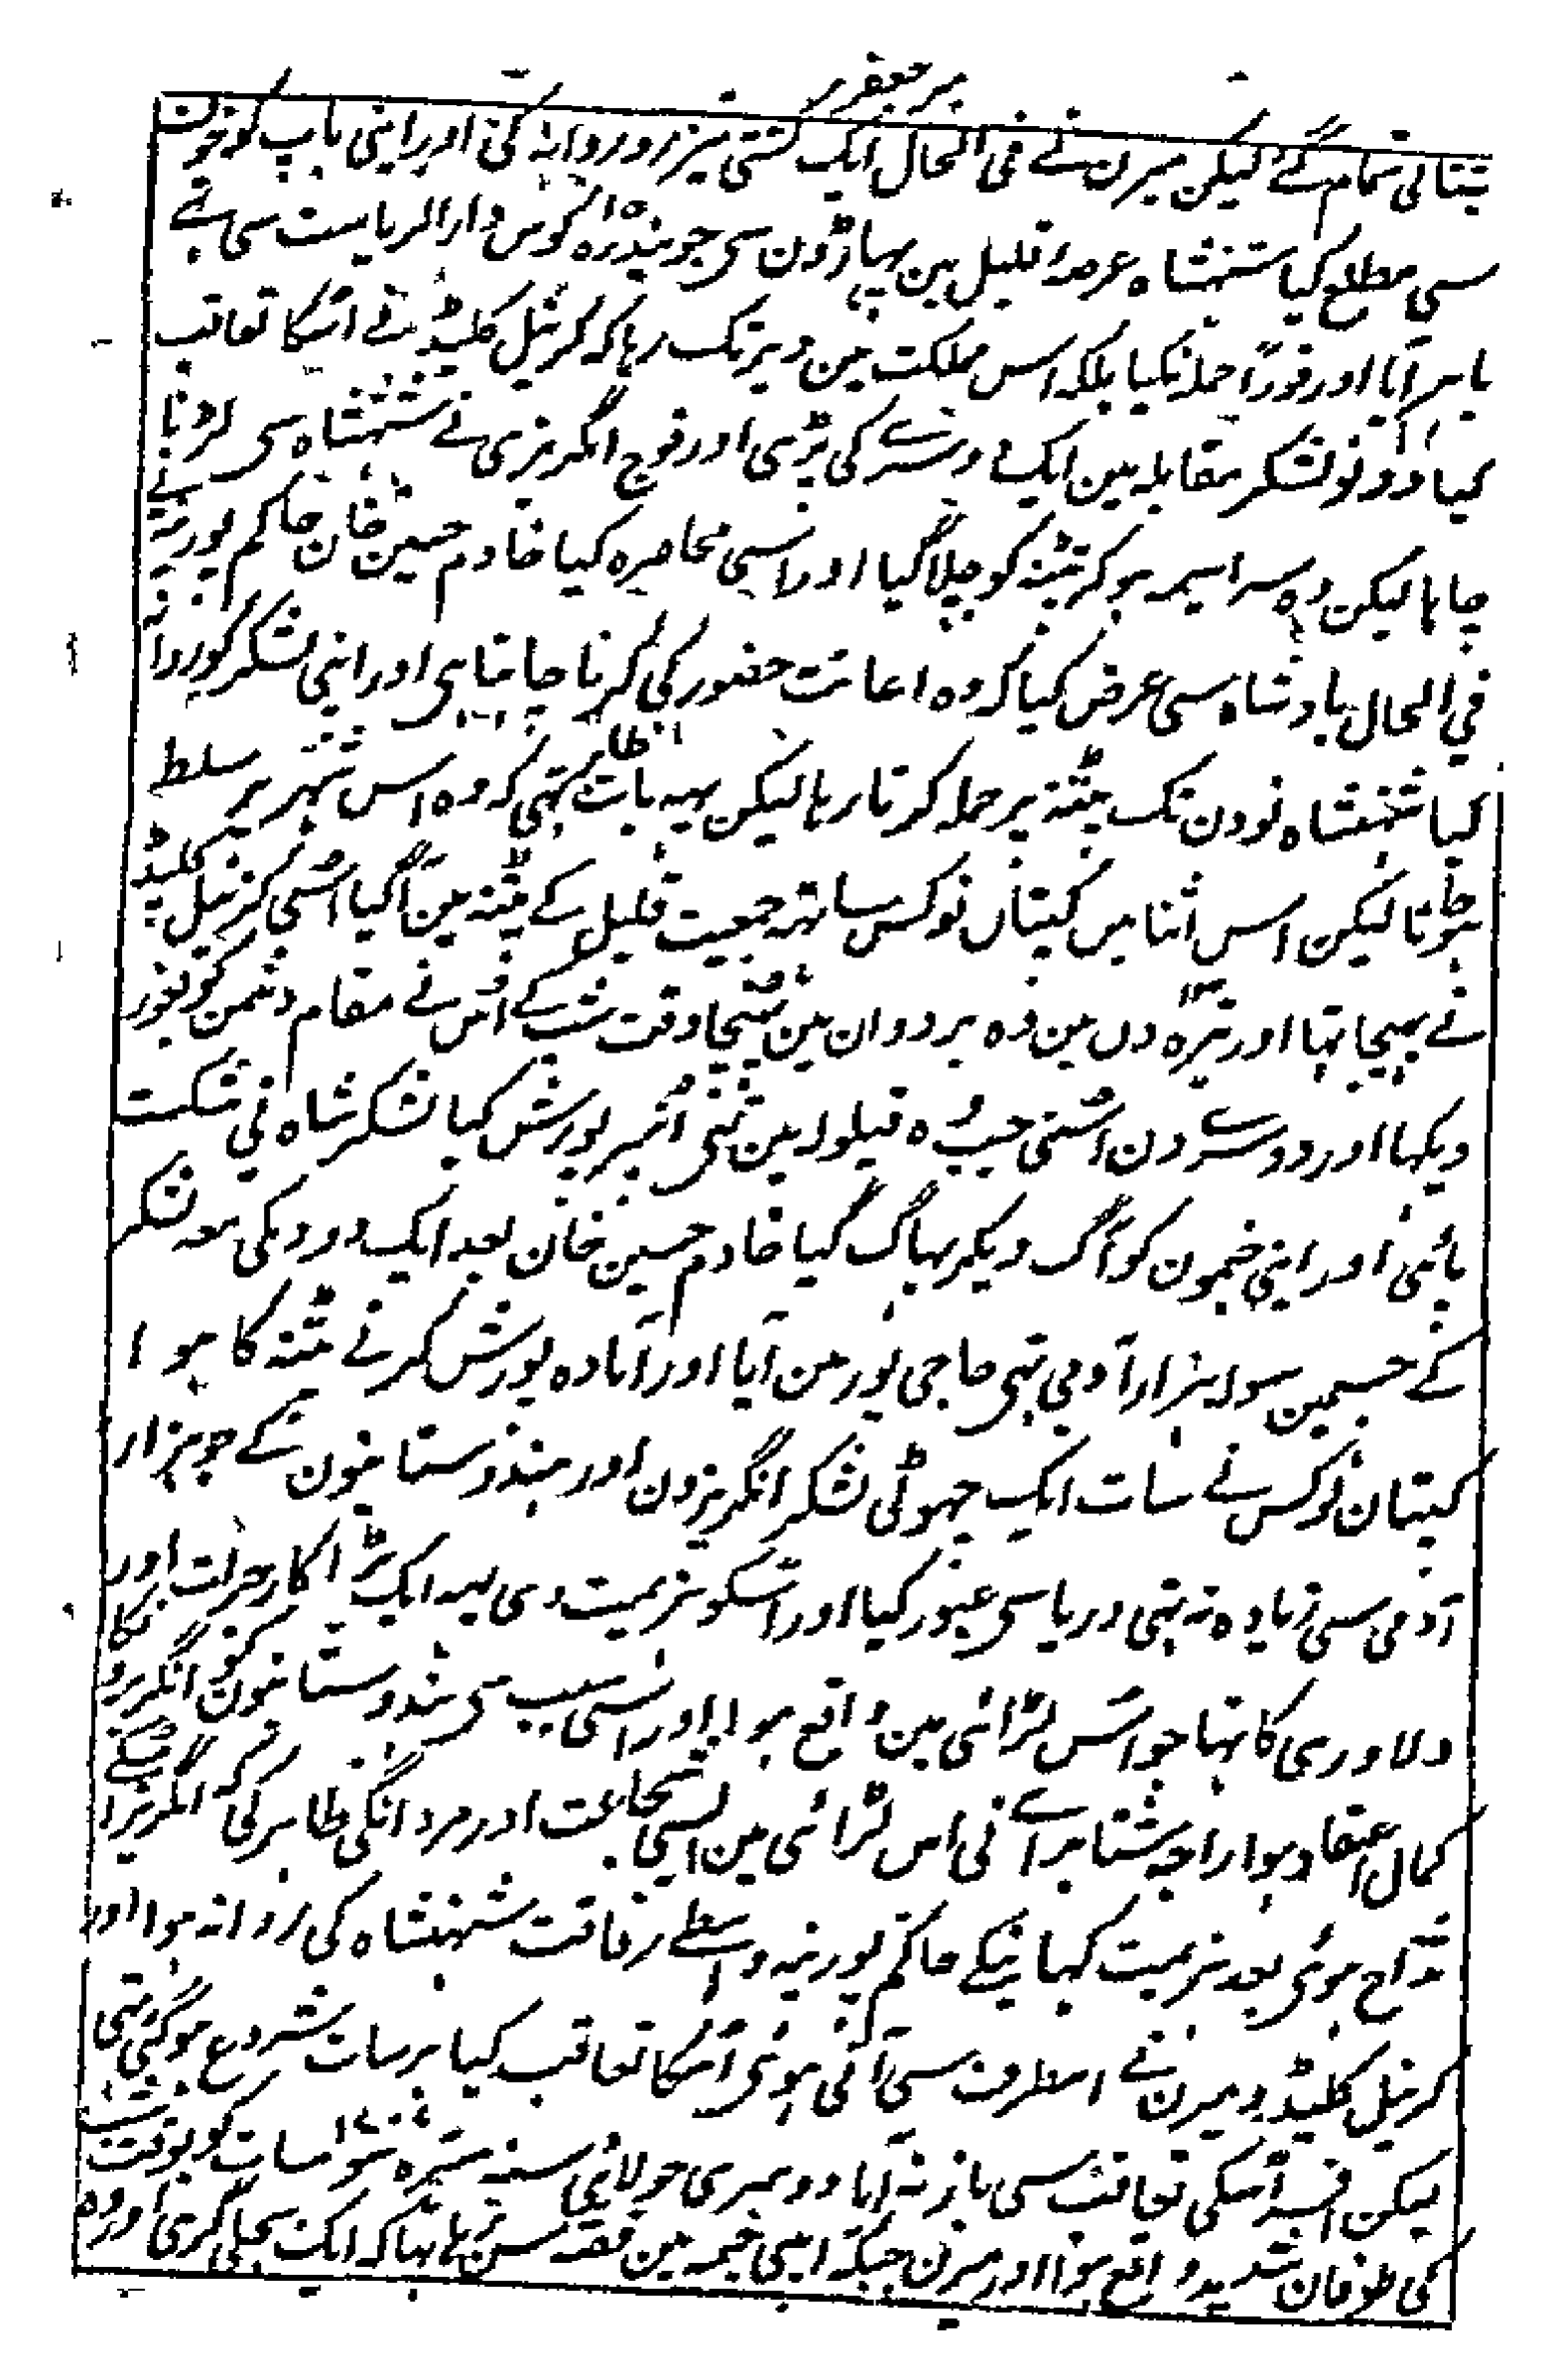 میر جعفر
بتنائی تمام گئے لیکن میرن نے فی الحال ایک کشتی تیز رو روانہ کی اور اپنی باپ کو خون
سی مطلع کیا شہنشاہ عرصہ قلیل مین پہاڑون سی جو پندرہ ۱۵ کوس دار الریاست سی ہے
باہر آیا اور فوراً حملہ نکیا بلکہ اس مملکت مین دیر تک رہا کہ کرنیل کلیڈ نے اسکا تعاقب
کیا دونو لشکر مقابلہ مین ایک دوسرے کی پڑی اور فوج انگریزی نے شہنشاہ سی لڑنا
چاہا لیکن وہ سراسیمہ ہوکر پٹنہ کو چلا گیا اور اسی محاصرہ کیا خادم حسین خان حاکم پورنیہ نے
فی الحال بادشاہ سی عرض کیا کہ وہ اعانت حضور کی کرنا چاہتا ہی اور اپنی لشکر کو روانہ
کیا شہنشاہ نو دن تک پٹنہ پر حملہ کرتا رہا لیکن یہہ بات ظاہر تہی کہ وہ اس شہر پر مسلط
ہوتا لیکن اس اثنا میں کپتان نوکس ساتہہ جمعیت قلیل کے پٹنہ مین آگیا اسی کرنیل کلیڈ
نے بہیجا تہا اور تیرہ ۱۳ دن مین وہ بردوان مین پہنچا وقت شب کے اس نے مقام دشمن کو بغور
دیکہا اور دوسرے دن اسنی جب وہ قیلولہ مین تہی انپر یورش کیا لشکر شاہ نی شکست
پائی اور اپنی خیمون کو آگ دیکر بہاگ گیا خادم حسین خان بعد ایک دو دنکی معہ لشکر
کے جسمین سولہ ہزار آدمی تہی حاجی پور مین آیا اور آمادہ یورش کرنے پٹنہ کا ہوا
کپتان نوکس نے سات ایک چہوٹی لشکر انگریزون اور ہندوستانیون کے جو ہزار
آدمی سی زیادہ نہ تہی دریا سی عبور کیا اور اسکو ہزیمت دی یہہ ایک بڑا کار جرات اور
دلاوری کا تہا جو اس لڑائی مین واقع ہوا اور اسی سبب سی ہندوستانیون کو انگریزونکا
کمال اعتقاد ہوا راجہ شتاب رائے نی اس لڑائی مین ایسی شجاعت اور مردانگی ظاہر کی کہ انگریز اسکے
مداح ہوئی بعد ہزیمت کہانیکے حاکم پورنیہ واسطے رفاقت شہنشاہ کی روانہ ہوا اور
کرنیل کلیڈ و میرن نے اسطرف سی آتی ہوئی اسکا تعاقب کیا برسات شروع ہوگئی تہی
لیکن افسر اسکی تعاقب سی باز نہ آیا دویمری جولائی سنہ سترہ سو سات کو بوقت شب
کی طوفان شدید واقع ہوا اور میرن جبکہ اپنی خیمہ مین قصہ سن رہا تہا کہ ایک بجلی گری اور وہ